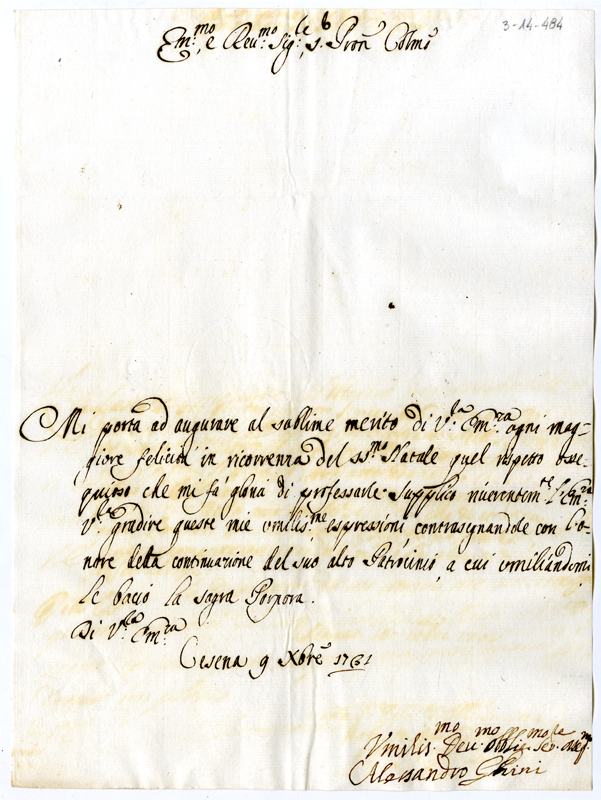 3-14-484
Em:mo, e Reu:mo Sig:le, s. Pron Colmo
Mi porta ad augurare al sublime merito di V:ra Em:za ogni mag-
giore felicità in ricorrenza del SS:mo Natale quel rispetto osse-
quioso che mi fà gloria di professarle. Supplico riuerentem:te l'Em:za
V:ra gradire queste mie vmilis:me espressioni contrasegnandole con l'o-
nore della continuazione del suo alto Patrocinio, a cui vmiliandomi
le bacio la sagra Porpora.
Di V:ra Em:za
Cesena 9 Xbre 1761
Vmilis:mo Deu:mo obblig:mo Ser:
Alessandro Ghini